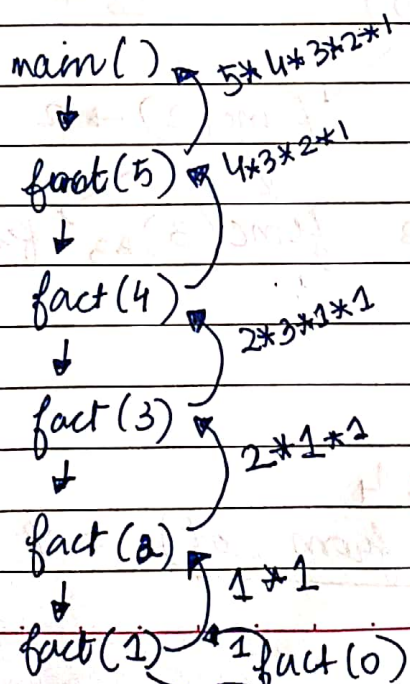 main()
5*4*3*2*1
fact(5)
4*3*2*1
fact(4)
2*3*1*1
fact(3)
2*1*1
fact(2)
1*1
fact(1) 1 fact(0)